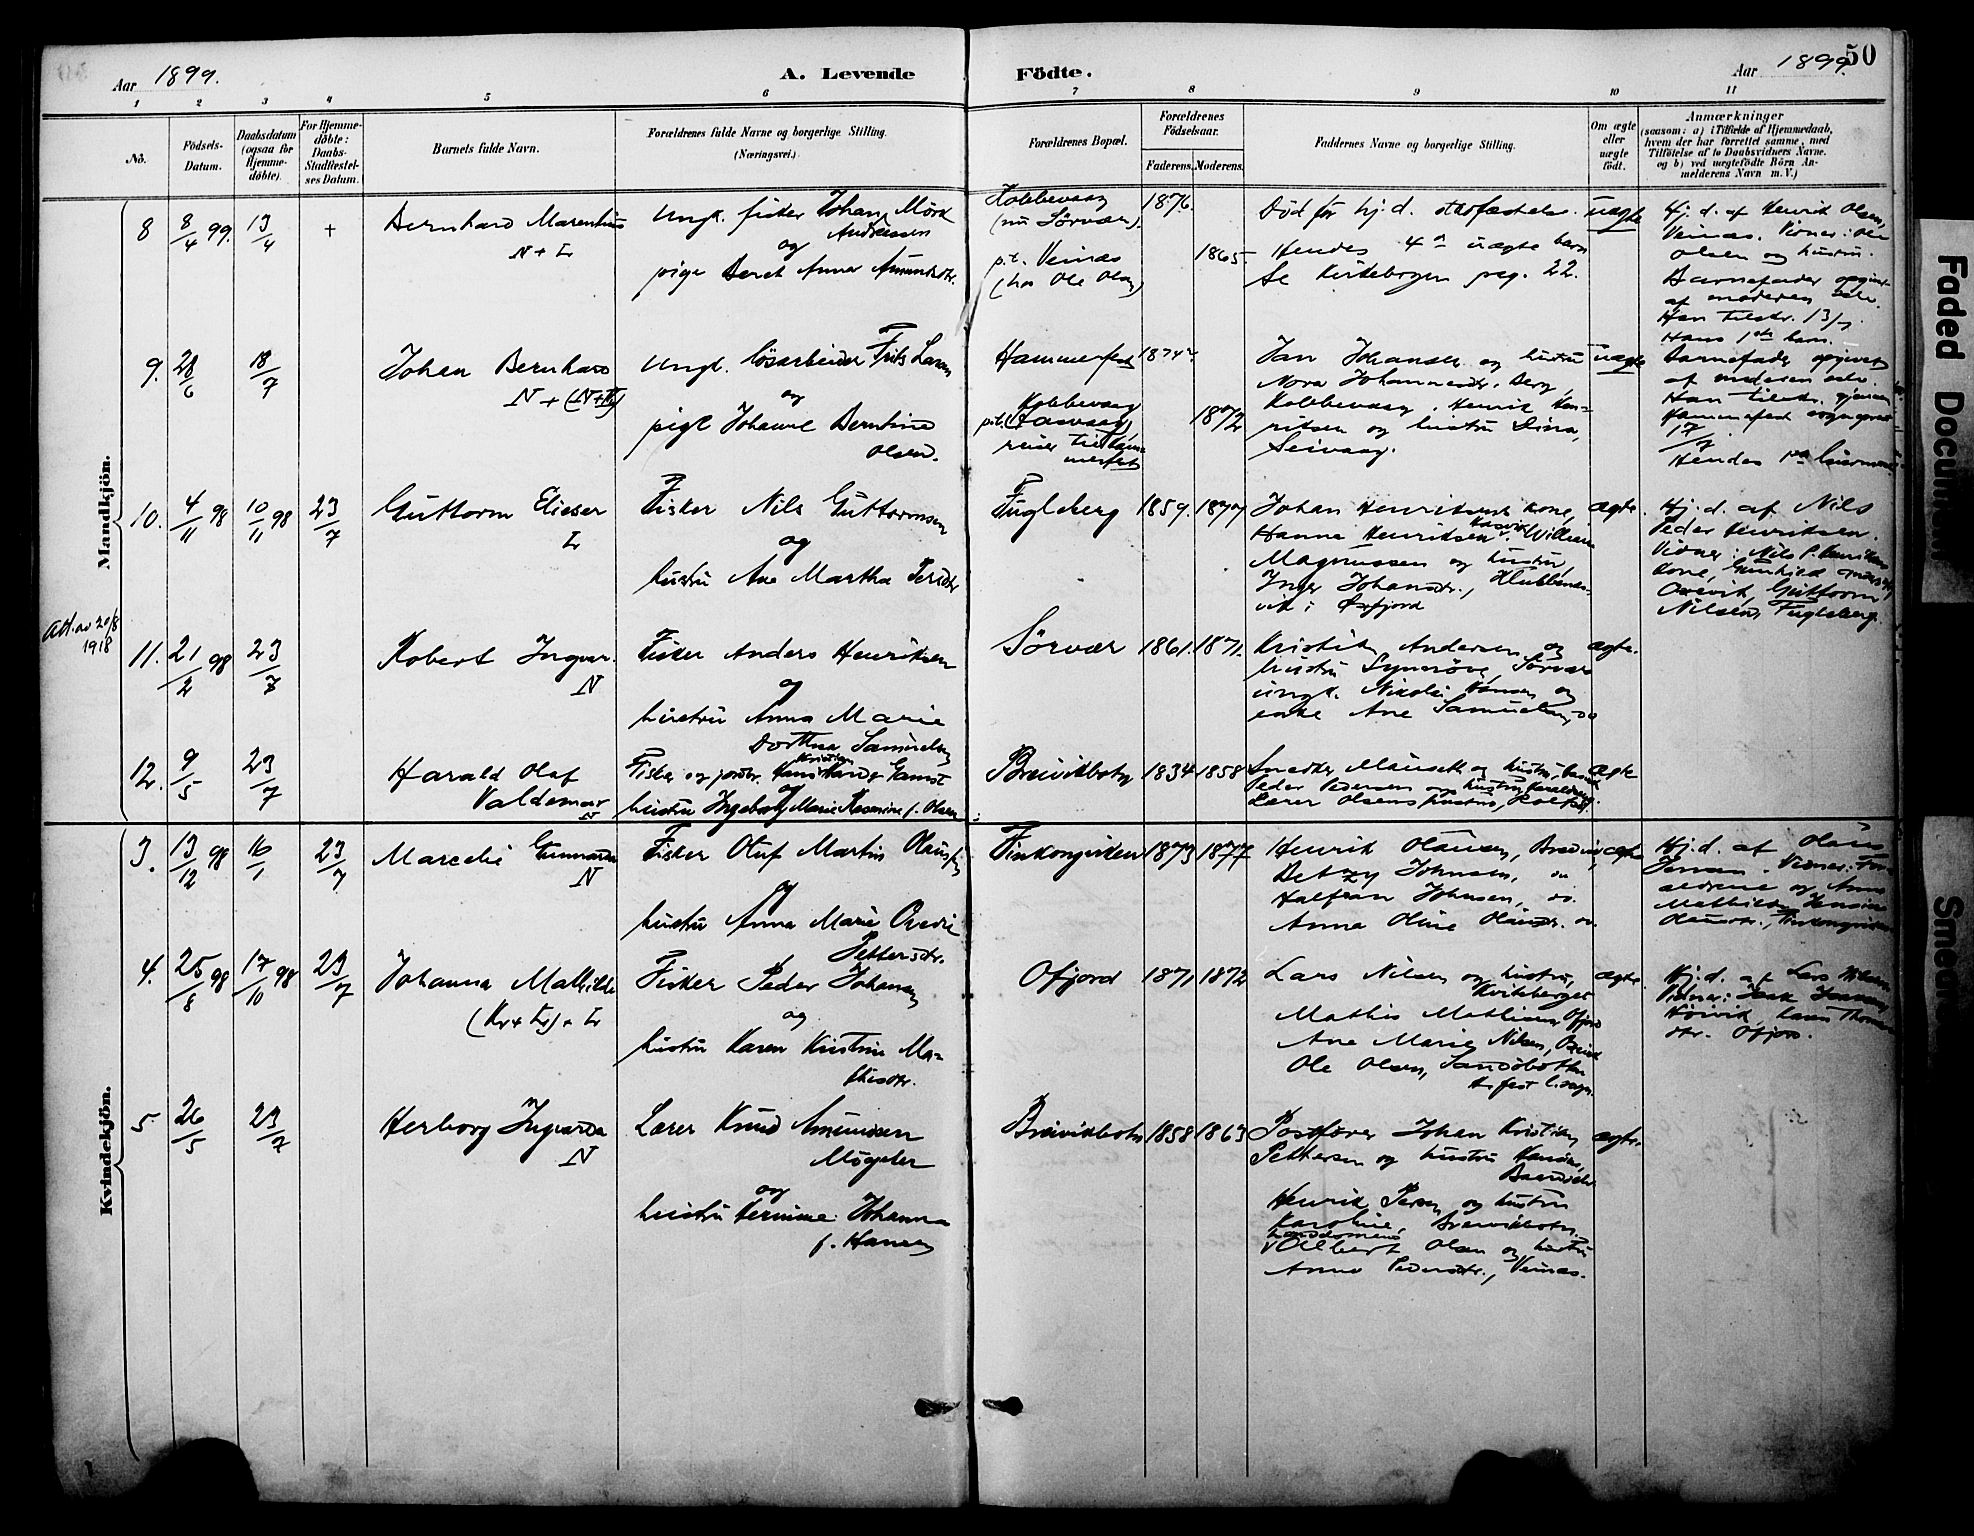 50
Aar 1899.
A. Levende
Födte.
Aar 1899.
1 2 3 4 5 6 7 8 9 10 11
No.
Födsels-
Datum.
Daabsdatum
(ogsaa för
Hjemme-
döbte).
For Hjemme-
döbte:
Daabs-
Stadfæstel-
ses Datum.
Barnets fulde Navn.
Forældrenes fulde Navne og borgerlige Stilling.
(Næringsvei.)
Forældrenes Bopæl.
Forældrenes
Födselsaar.
Faderens. Moderens.
Faddernes Navne og borgerlige Stilling.
Om ægte
eller
uægte
födt.
Anmærkninger
(saasom: a) i Tilfælde af Hjemmedaab,
hvem der har forrettet samme, med
Tilföielse af to Daabsvidners Navne.
og b) ved uægtefödte Börn An-
melderens Navn m. V.)
Mandkjön.
8 8/4 99. 13/4 +
Bernhard Marenhius
N + L
Ungk. fisker Johan Mörk
Andreassen
og
pige Beret Anna Amundsdtr.
Kobbevaag
(nu Sörvær).
p.t. Veinæs
(hos Ole Olsen)
1876.
1865
Död før hj.d. stadfæstelse.
Hendes 4de uægte barn
Se Kirkebogen pag. 22.
uægte
Hj. d. af Henrik Olsen,
Veinæs. Vidner: Ole
Olsen og hustru.
Barnefader opgivet
af moderen selv.
Han tilstr. 13/7
Hans 1ste barn.
9. 28/6 18/7
Johan Bernhard
Ungk. lösarbeider Frits Larsen
og
pige Johanne Berntine
Olsen.
Hammerfest
Kobbevaag
reiser til Ham-
merfest
1874
1872
Jan Johansen og hustru
Nora Johannesdr. Berg
Kobbevaag. Henrik Hen-
riksen og hustru Dina,
Seivaag.
uægte
Barnefader opgivet
af moderen selv.
Han tilstr. gjennem
Hammerfest sogneprest
17/7
Hendes 1ste
10. 4/11 98 10/11 98 23/7
Guttorm Elieser
L
Fisker Nils Guttormsen
og
hustru Ane Martha Persdtr
Fugleberg 1859. 1877
Johan Henriksens kone,
Hanna Henriksen William
Magnussen og hustru,
Inger Johansdtr., Klubbenes-
vik i Øxfjord
ægte.
Hj. d. af Nils
Peder Henriksen.
Vidner: Nils P. Henriksens
kone, Gunhild
Oxevik, Guttorm
Nilsen, Fugleberg.
Att. av 20/8
1918
11. 21/2 98 23/7
Robert Ingvar.
N
Fisker Anders Henriksen
og
hustru Anna Marie
Dorthea Samuelsen
Sörvær 1861. 1871.
Kristian Andersen og
hustru Synnöve, Sörvær
ungk. Nikolai Hansen og
enke Ane Samuelsen, do
ægte.
12. 9/5 23/7
Harald Olaf
Valdemar
N
Fisker og jordbr. Hans Kristian Gamst
og
hustru Ingeborg Marie f. Olsen
Breivikbotn 1834 1858
og hustru,
Peder Pedersen og hustru,
Lærer Olsens hustru,
ægte
Kvindekjön.
3. 13/12 98 16/1 23/7
Marcelie Gunnarda
N
Fisker Oluf Martin Olaussen
og
hustru Anna Marie Ovedie
Pettersdtr.
Finkongviken 1873 1877
Henrik Olausen, Bredvik,
Betzy Johnsen, do
Halfran Johnsen, do.
Anna Oline Olausdr. do
ægte
Hj. d. af Olaus
Jensen. Vidner: For-
ældrene og Anna
Mathilde Hansine
Olausdtr., Finkongviken
4. 25/8 98 17/10 98 23/7
Johanna Mathilde
(Kv + L) + L
Fisker Peder Johansen
og
hustru Karen Kristine Ma-
thisdtr.
Ofjord 1871 1872
Lars Nilsen og hustru,
Kviteberget
Mathis Mathisen, Ofjord
Ane Marie Nilsen, Oxevik
Ole Olsen, Sandöbotn
H.fest l.sogn.
ægte.
Hj. d. af Lars Nilsen
Vidner: Isak Johansen,
Höivik, Lars Thomas-
dtr. Ofjord.
5 26/5 23/7
Herborg Ingvarda
N
Lærer Knud Amundsen
Mögster
og
hustru Hermine Johanna
f. Hansen
Breivikbotn 1858 1863
Postfører Johan Kristian
Pettersen og hustru
Henrik Persen og hustru
Karoline, Breivikbotn.
Landdomens
Albert Olsen og hustru
Anna Pedersdtr., Veinæs.
ægte.
Faded Document
Smeared